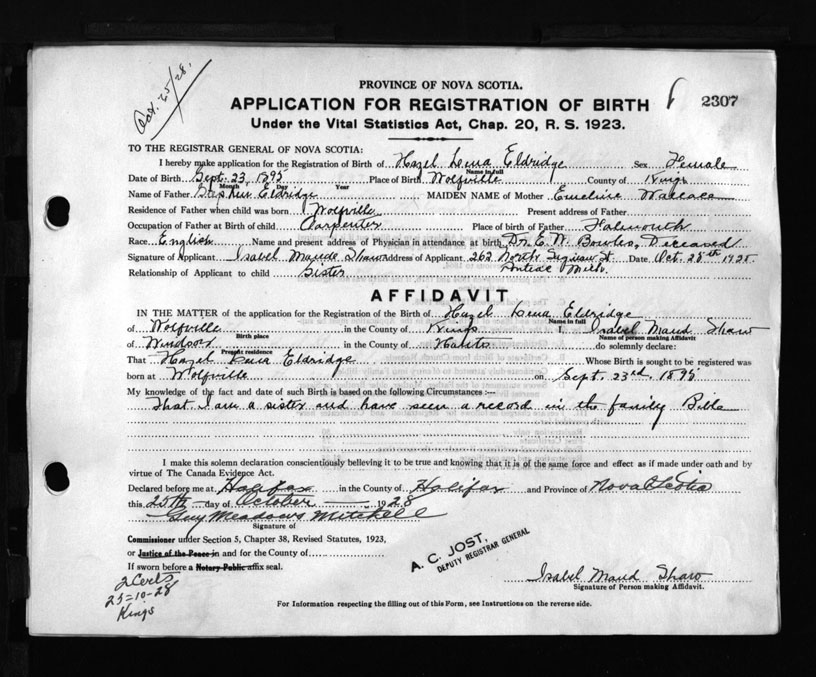 Oct. 25/28.
PROVINCE OF NOVA SCOTIA.
2307
APPLICATION FOR REGISTRATION OF BIRTH
Under the Vital Statistics Act, Chap. 20, R. S. 1923.
TO THE REGISTRAR GENERAL OF NOVA SCOTIA:
I hereby make application for the Registration of Birth of Hazel Lena Eldridge Sex Female
Name in full
Date of Birth Sept. 23, 1895 Place of Birth Wolfville County of Kings
Month Day Year
Name of Father Stephen Eldridge MAIDEN NAME of Mother Emeline Wallace
Residence of Father when child was born Wolfville Present address of Father
Occupation of Father at Birth of child Carpenter Place of Birth of Father Falmouth
Race English Name and present address of Physician in attendance at birth Dr. E. N. Bowles, Deceased
Signature of Applicant Isabel Maude Shaw Address of Applicant 262 North St. Date Oct. 25th 1928
Relationship of Applicant to child Sister Pontiac Mich.
AFFIDAVIT
IN THE MATTER of the application for the Registration of the Birth of Hazel Lena Eldridge
Name in full
of Wolfville in the County of Kings I, Isabel Maud Shaw
Birth place Name of person making Affidavit
of Windsor in the County of Hants do solemnly declare:
Present residence
That Hazel Lena Eldridge Whose Birth is sought to be registered was
born at Wolfville on Sept. 23rd. 1895
My knowledge of the fact and date of such Birth is based on the following Circumstances :—
That I am a sister and have seen a record in the family Bible
I make this solemn declaration conscientiously believing it to be true and knowing that it is of the same force and effect as if made under oath and by
virtue of The Canada Evidence Act.
Declared before me at Halifax in the County of Halifax and Province of Nova Scotia
this 25th day of October 1928
Guy Meadows Mitchell
Signature of
Commissioner under Section 5, Chapter 38, Revised Statutes, 1923,
or Justice of the Peace in and for the County of
If sworn before a Notary Public affix seal.
A. C. JOST,
DEPUTY REGISTRAR GENERAL
Isabel Maud Shaw
Signature of Person making Affidavit.
2 Certs
25-10-28
Kings
For Information respecting the filling out of this Form, see Instructions on the reverse side.